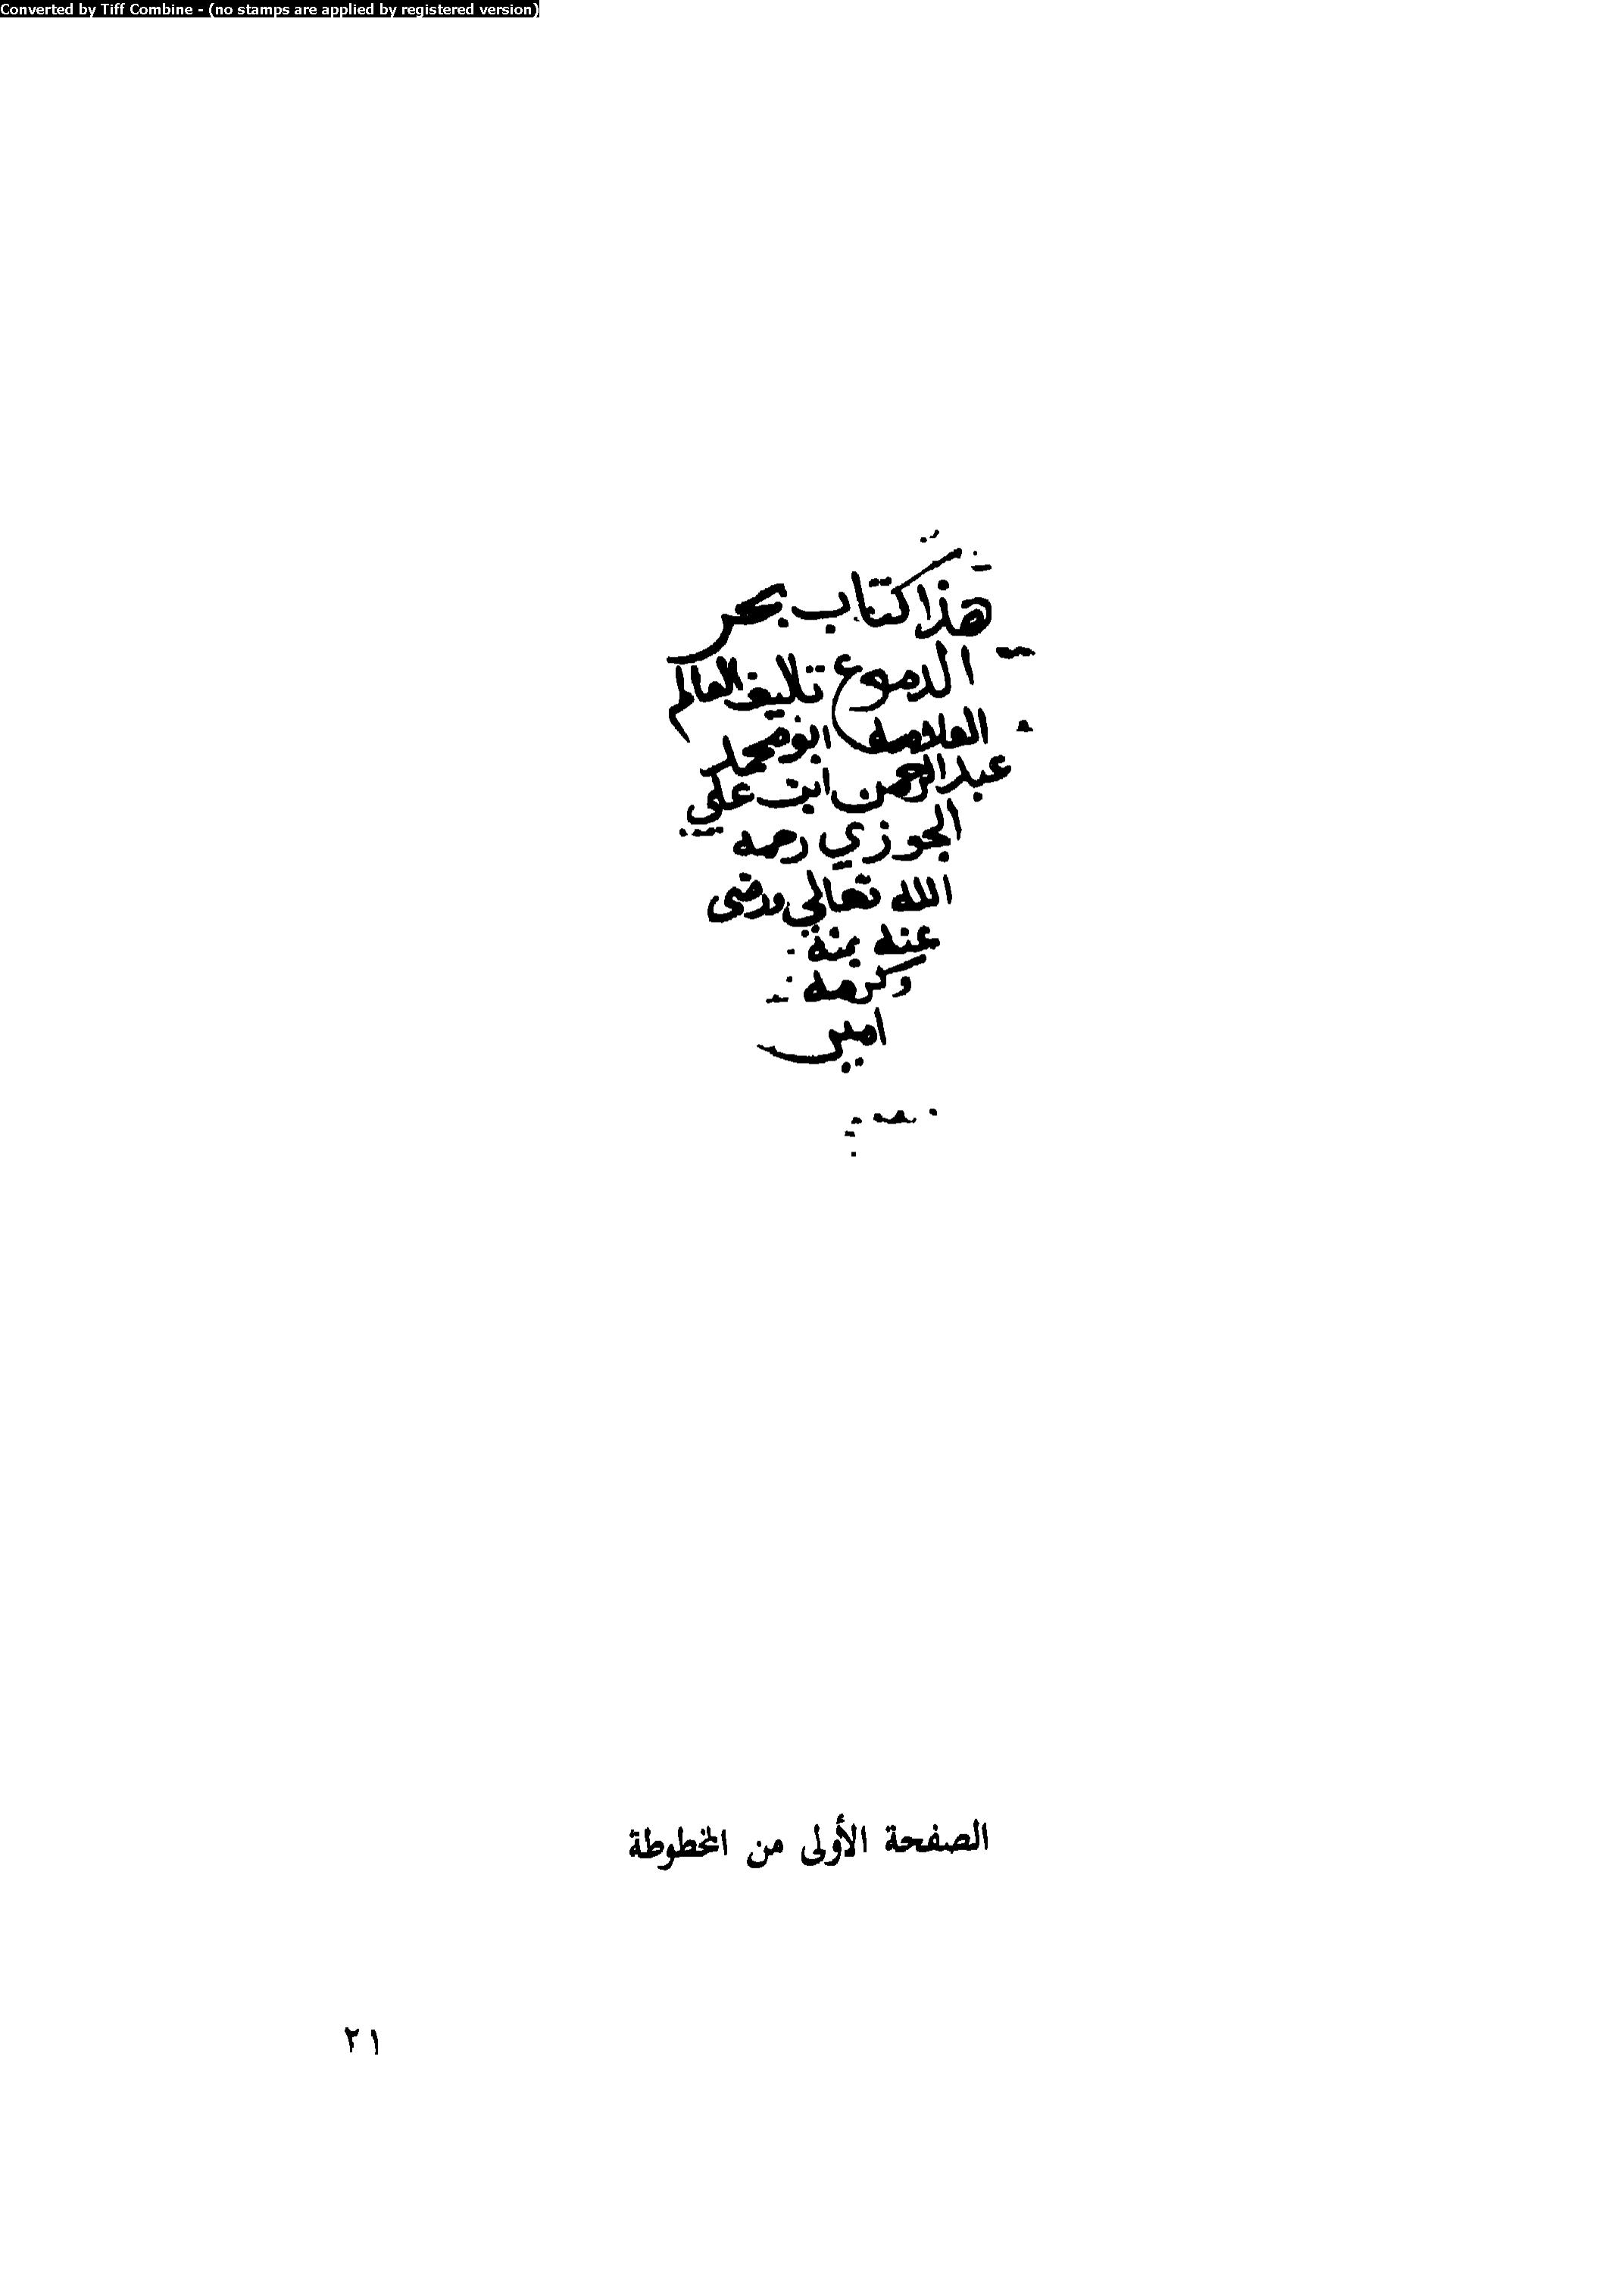 Converted by Tiff Combine - (no stamps are applied by registered version)
هذا كتاب بحر
الدموع تاليف العالم
العلامه ابو محمد
عبد الرحمن ابن علي
الجوزي رحمه
الله تعالى ورضى
عنه بمنة
وكرمه
امين
الصفحة الأولى من المخطوطة
٢١